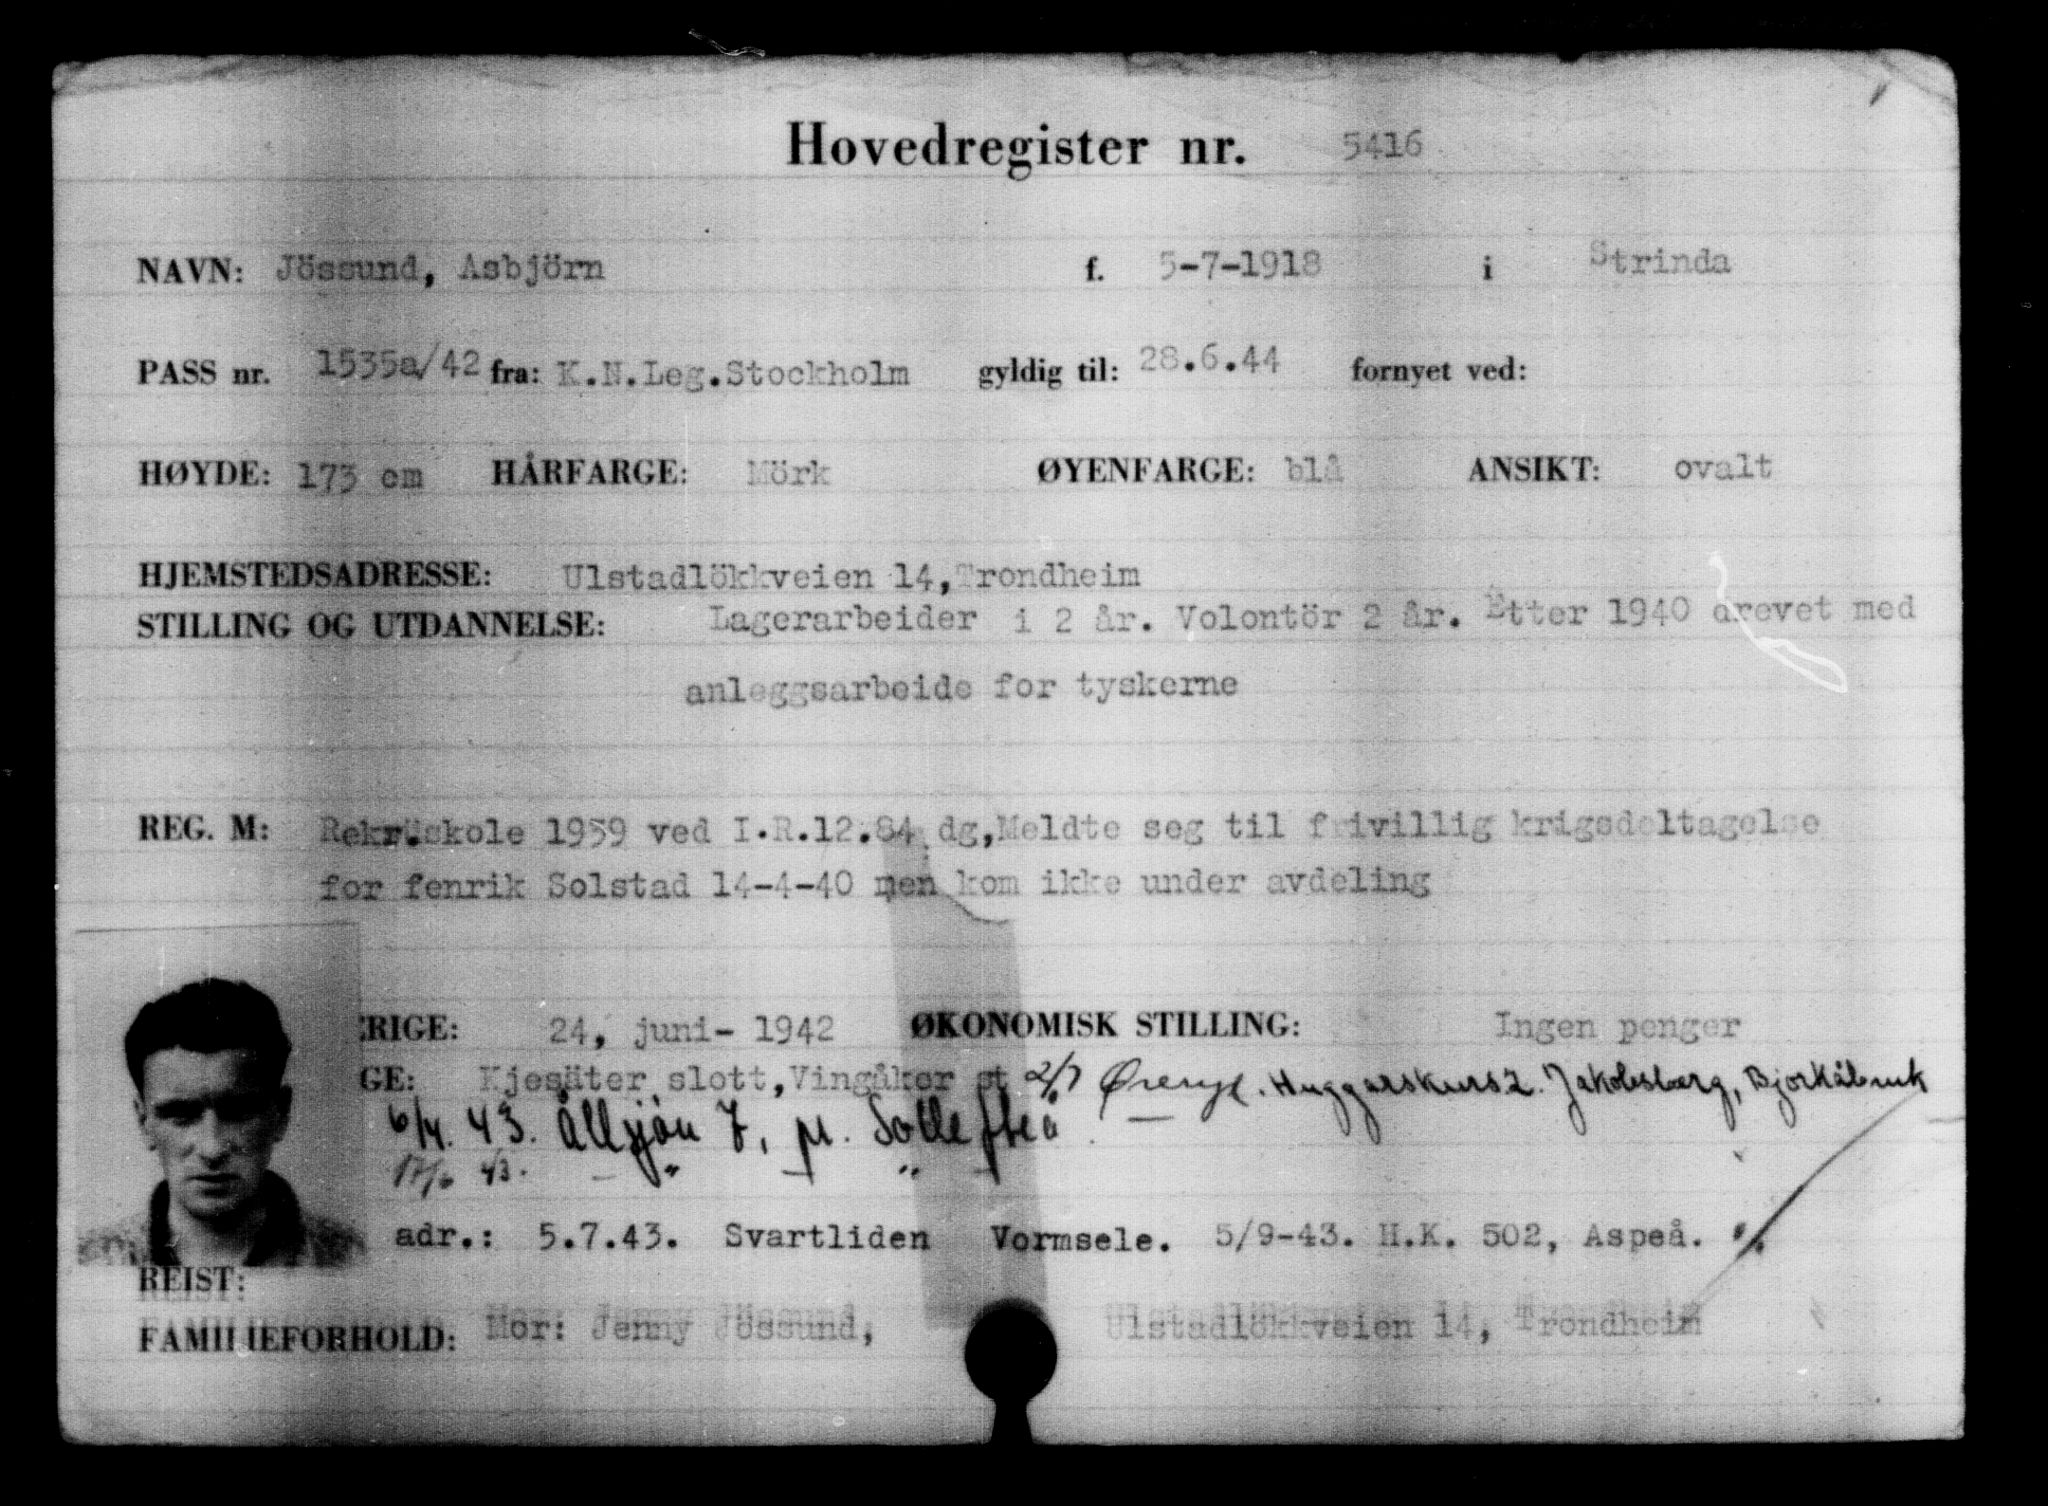 Hovedregister nr. 5416
NAVN: Jössund, Asbjörn f. 5-7-1918 i Strinda
PASS nr. 1535a/42 fra: K.N.Leg.Stockholm gyldig til: 28.6.44 fornyet ved:
HØYDE: 173 cm HÅRFARGE: Mörk ØYENFARGE: blå ANSIKT: ovalt
HJEMSTEDSADRESSE: Ulstadlökkveien 14, Trondheim
STILLING OG UTDANNELSE: Lagerarbeider i 2 år. Volontör 2 år. Etter 1940 drevet med
anleggsarbeide for tyskerne
REG. M: Rekr.skole 1959 ved I.R.12.84 dg, Meldte seg til frivillig krigsdeltagelse
for fenrik Solstad 14-4-40 men kom ikke under avdeling
ERIGE: 24, juni- 1942 ØKONOMISK STILLING: Ingen penger
GE: Kjesäter slott, Vingåker st 2/7 Öreryd. Huggarskurs 2. Jakobsberg, Björkåbruk
6/4. 43. Ållsjön 7, pr. Sollefteå
17/6 43. — " — " —
adr.: 5.7.43. Svartliden Vormsele. 5/9-43. H.K. 502, Aspeå. %.
REIST:
FAMILIEFORHOLD: Mor: Jenny Jössund, Ulstadlökkveien 14, Trondheim